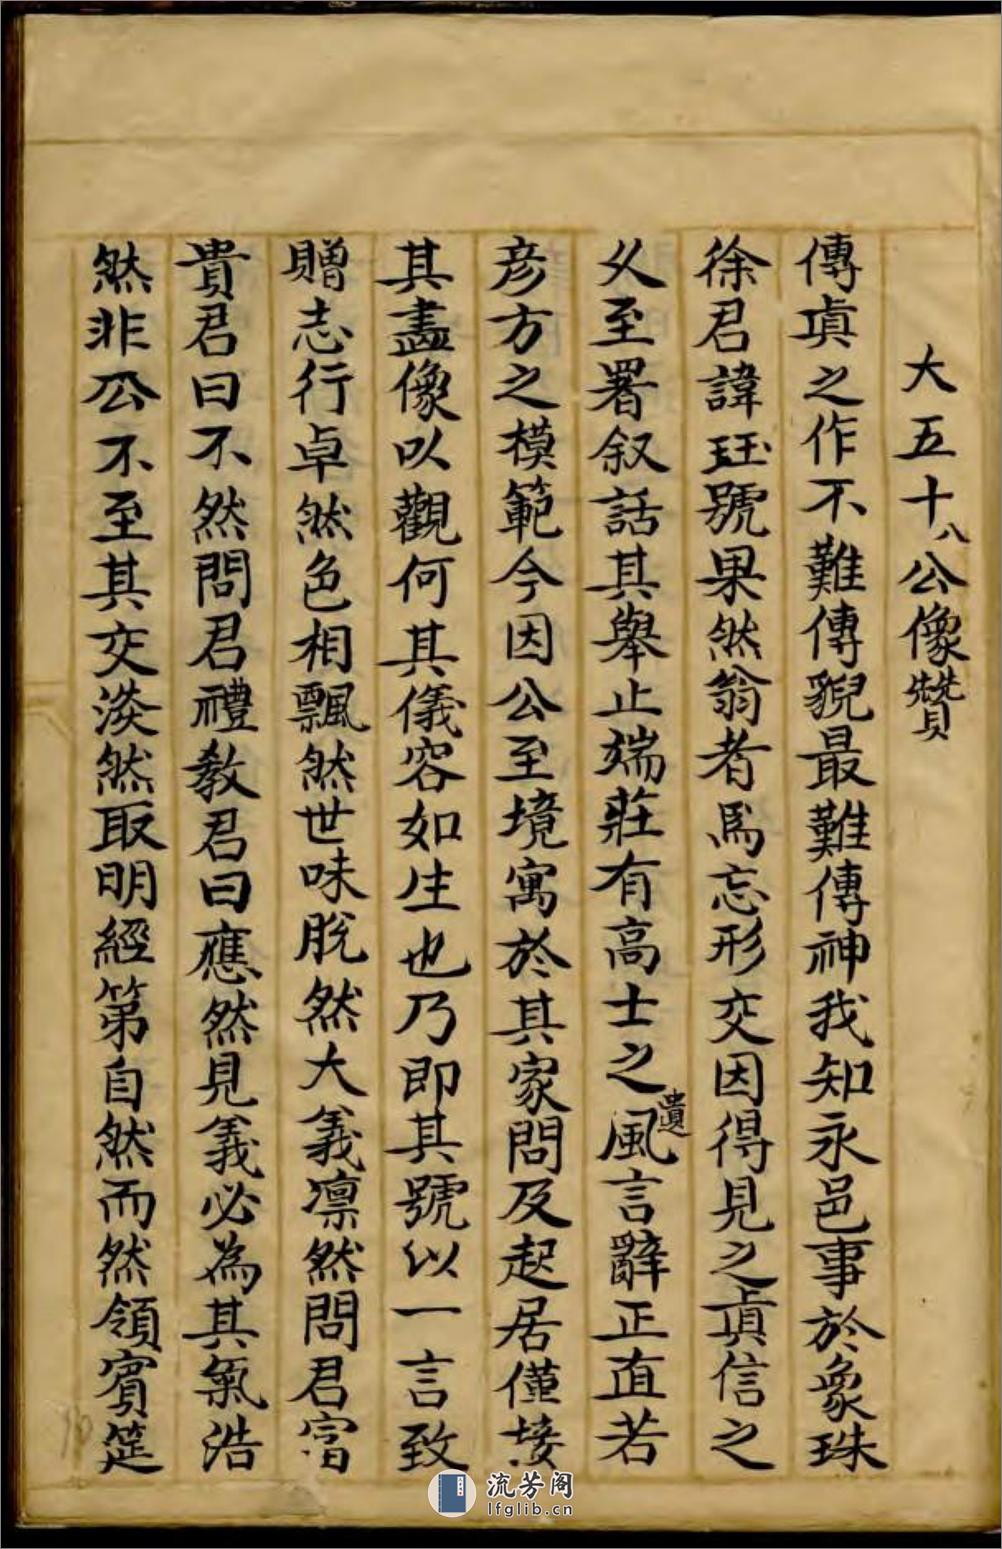 大五十八公像贊
傳真之作不難傳貌最難傳神我知永邑事於象珠
徐君諱珏號果然翁者為忘形交因得見之真信之
乆至署叙話其舉止端莊有高士之遺風言辭正直若
彦方之模範今因公至境寓於其家問及起居僅接
其畵像以觀何其儀容如生也乃即其號以一言致
贈志行卓然色相飄然世味脫然大義凛然問君富
貴君曰不然問君禮教君曰應然見義必為其氣浩
然非公不至其交淡然取明經第自然而然領賓筵
流芳阁
lfglib.cn